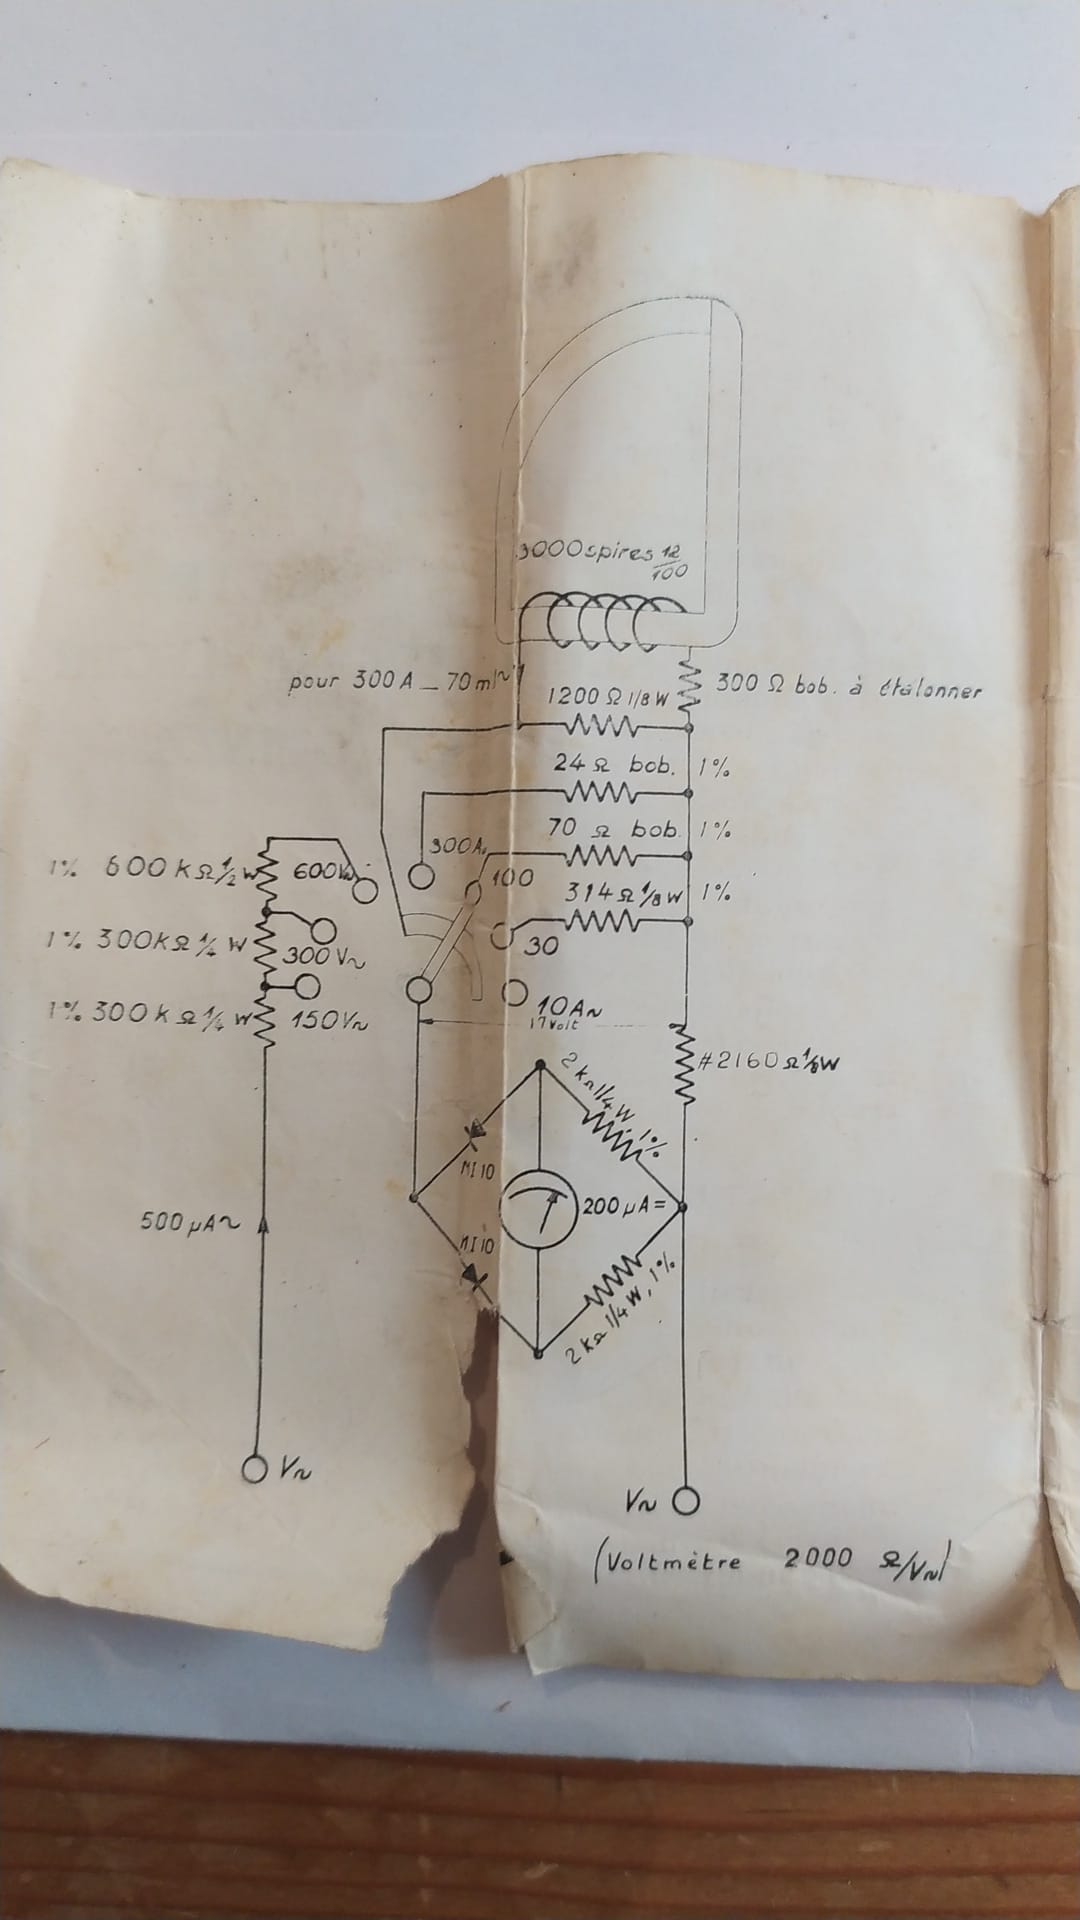 3000 spires 12/100
pour 300 A _ 70 ml~
300 Ω bob. à étalonner
1200 Ω 1/8 W
24 Ω bob. 1%
70 Ω bob. 1%
300A~
1% 600 kΩ 1/2 W
600V~
100
314 Ω 1/8 W 1%
1% 300kΩ 1/4 W
300 V~
30
1% 300 k Ω 1/4 W
150V~
10A~
17Volt
#2160 Ω 1/8W
2 kΩ 1/4 W. 1%
MI 10
500 µA~
200 µA=
MI 10
2 kΩ 1/4 W, 1%
V~
V~
(Voltmètre 2000 Ω/V~)